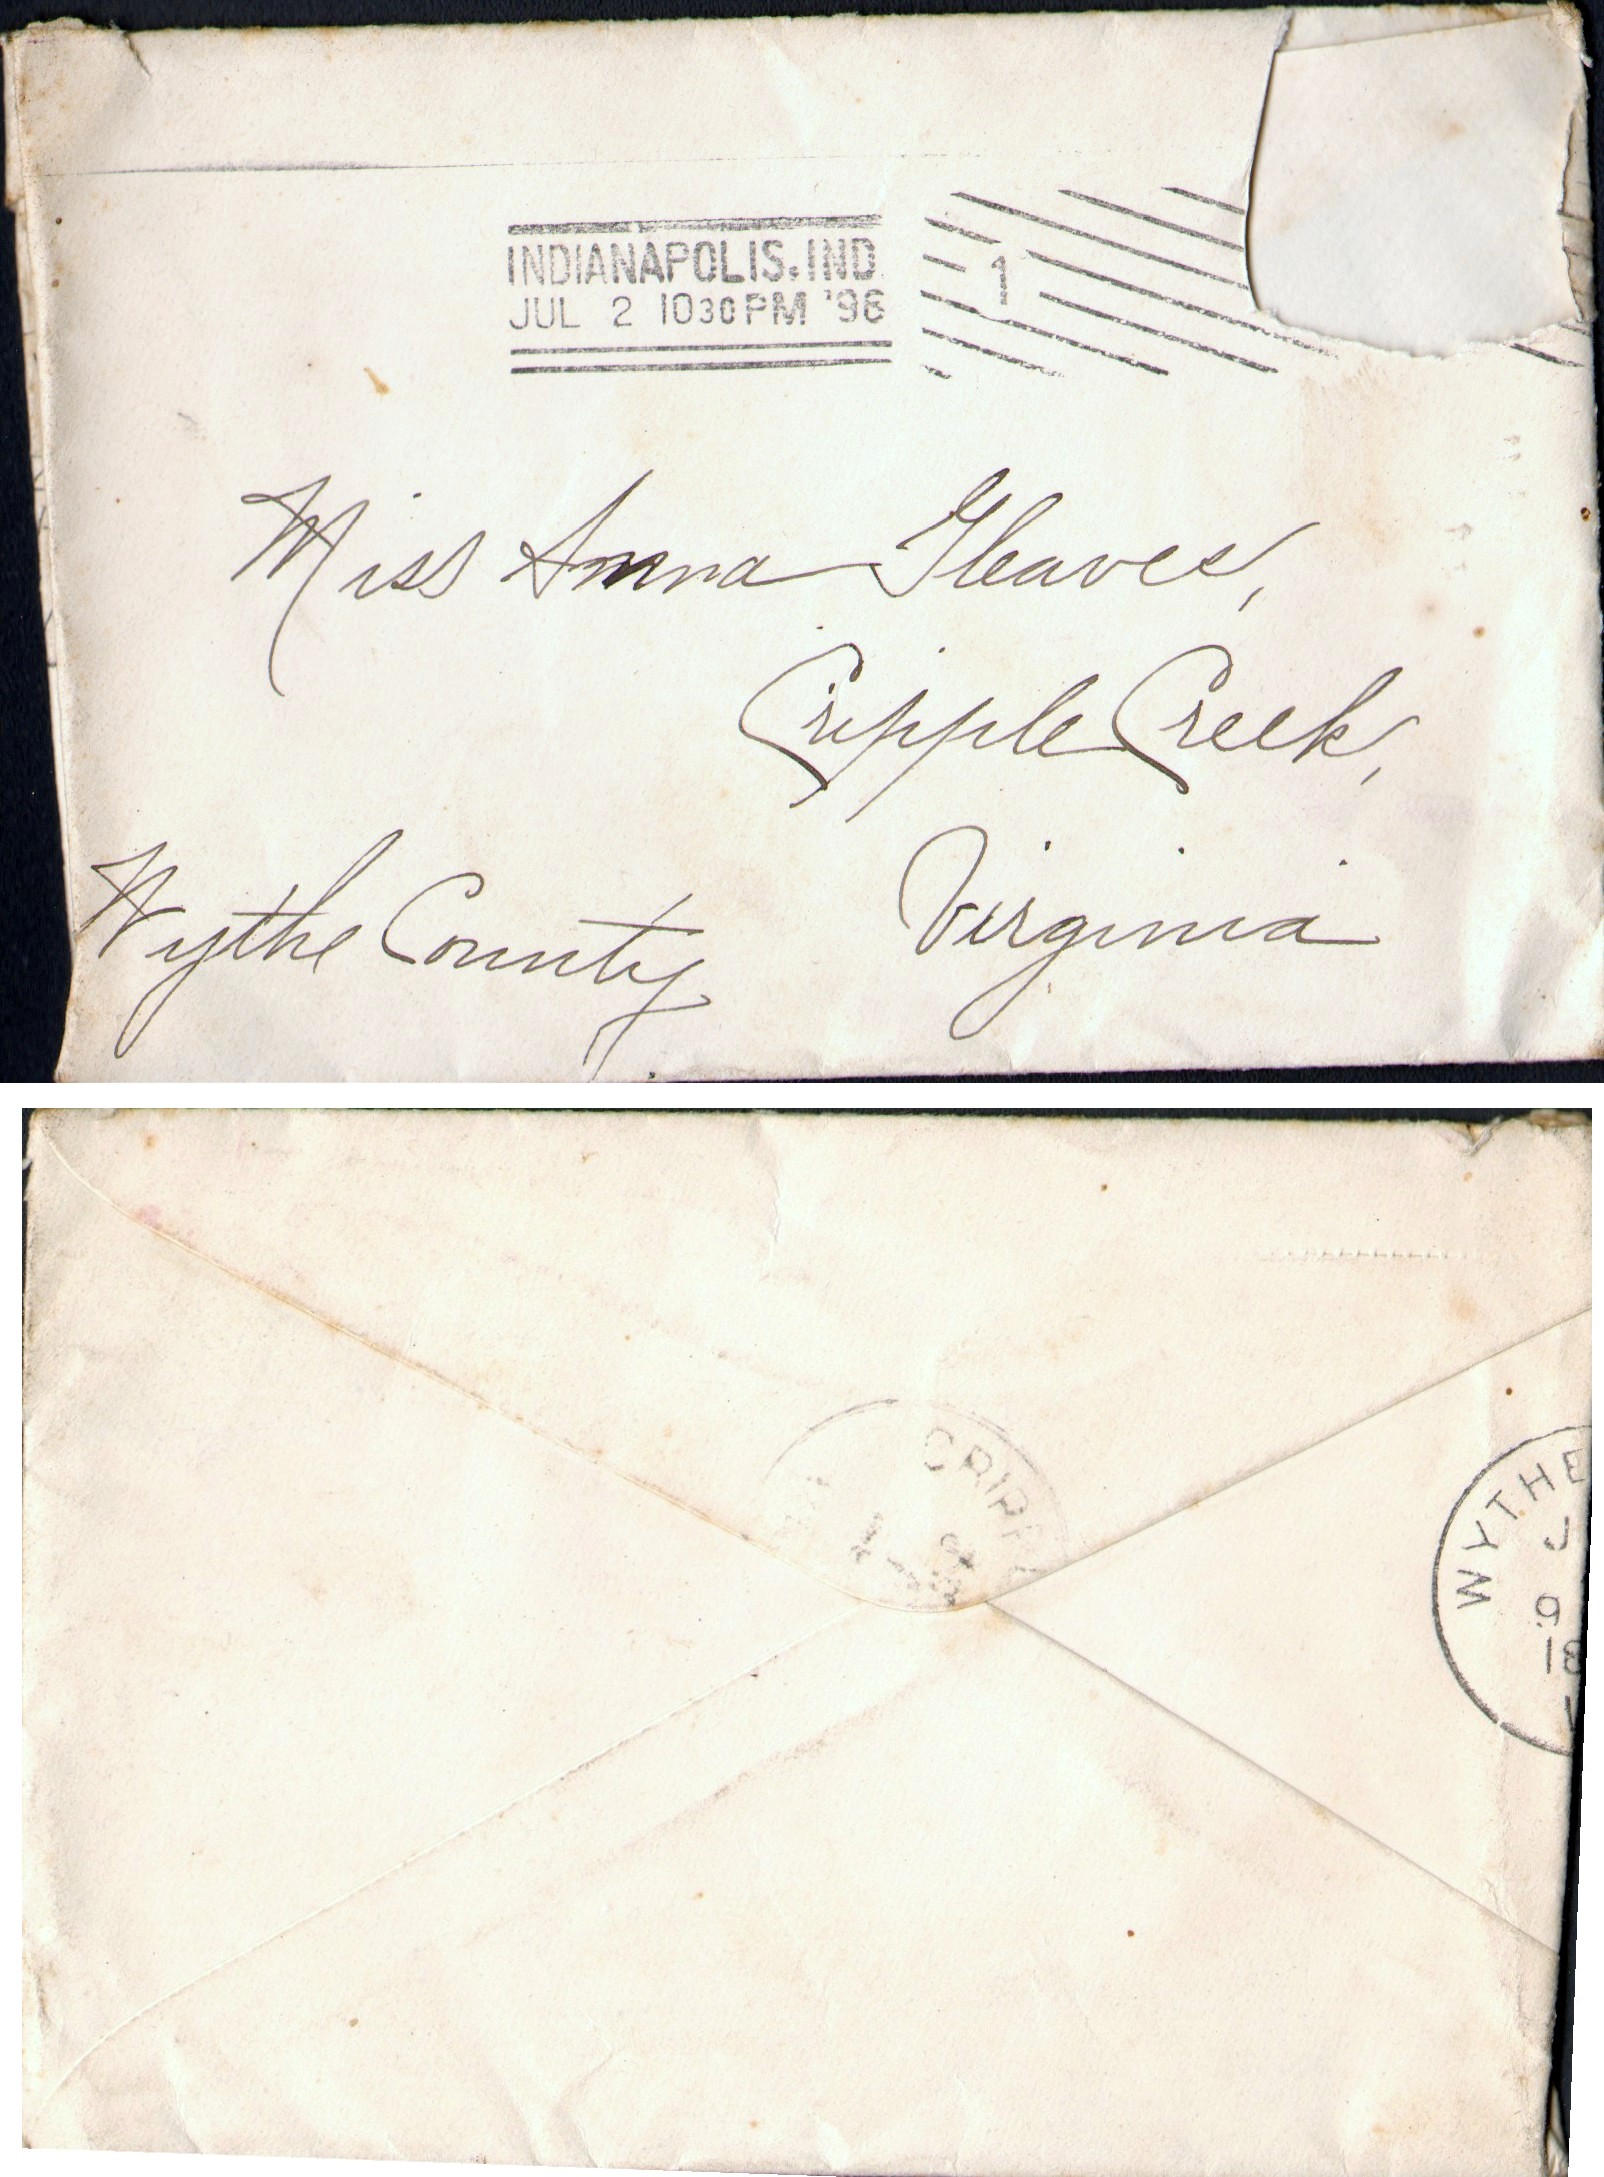 INDIANAPOLIS, IND.
JUL 2 1030 PM '96
1
Miss Anna Gleaves,
Cripple Creek,
Wythe County Virginia
CRIPPL
WYTHE
J
9
18